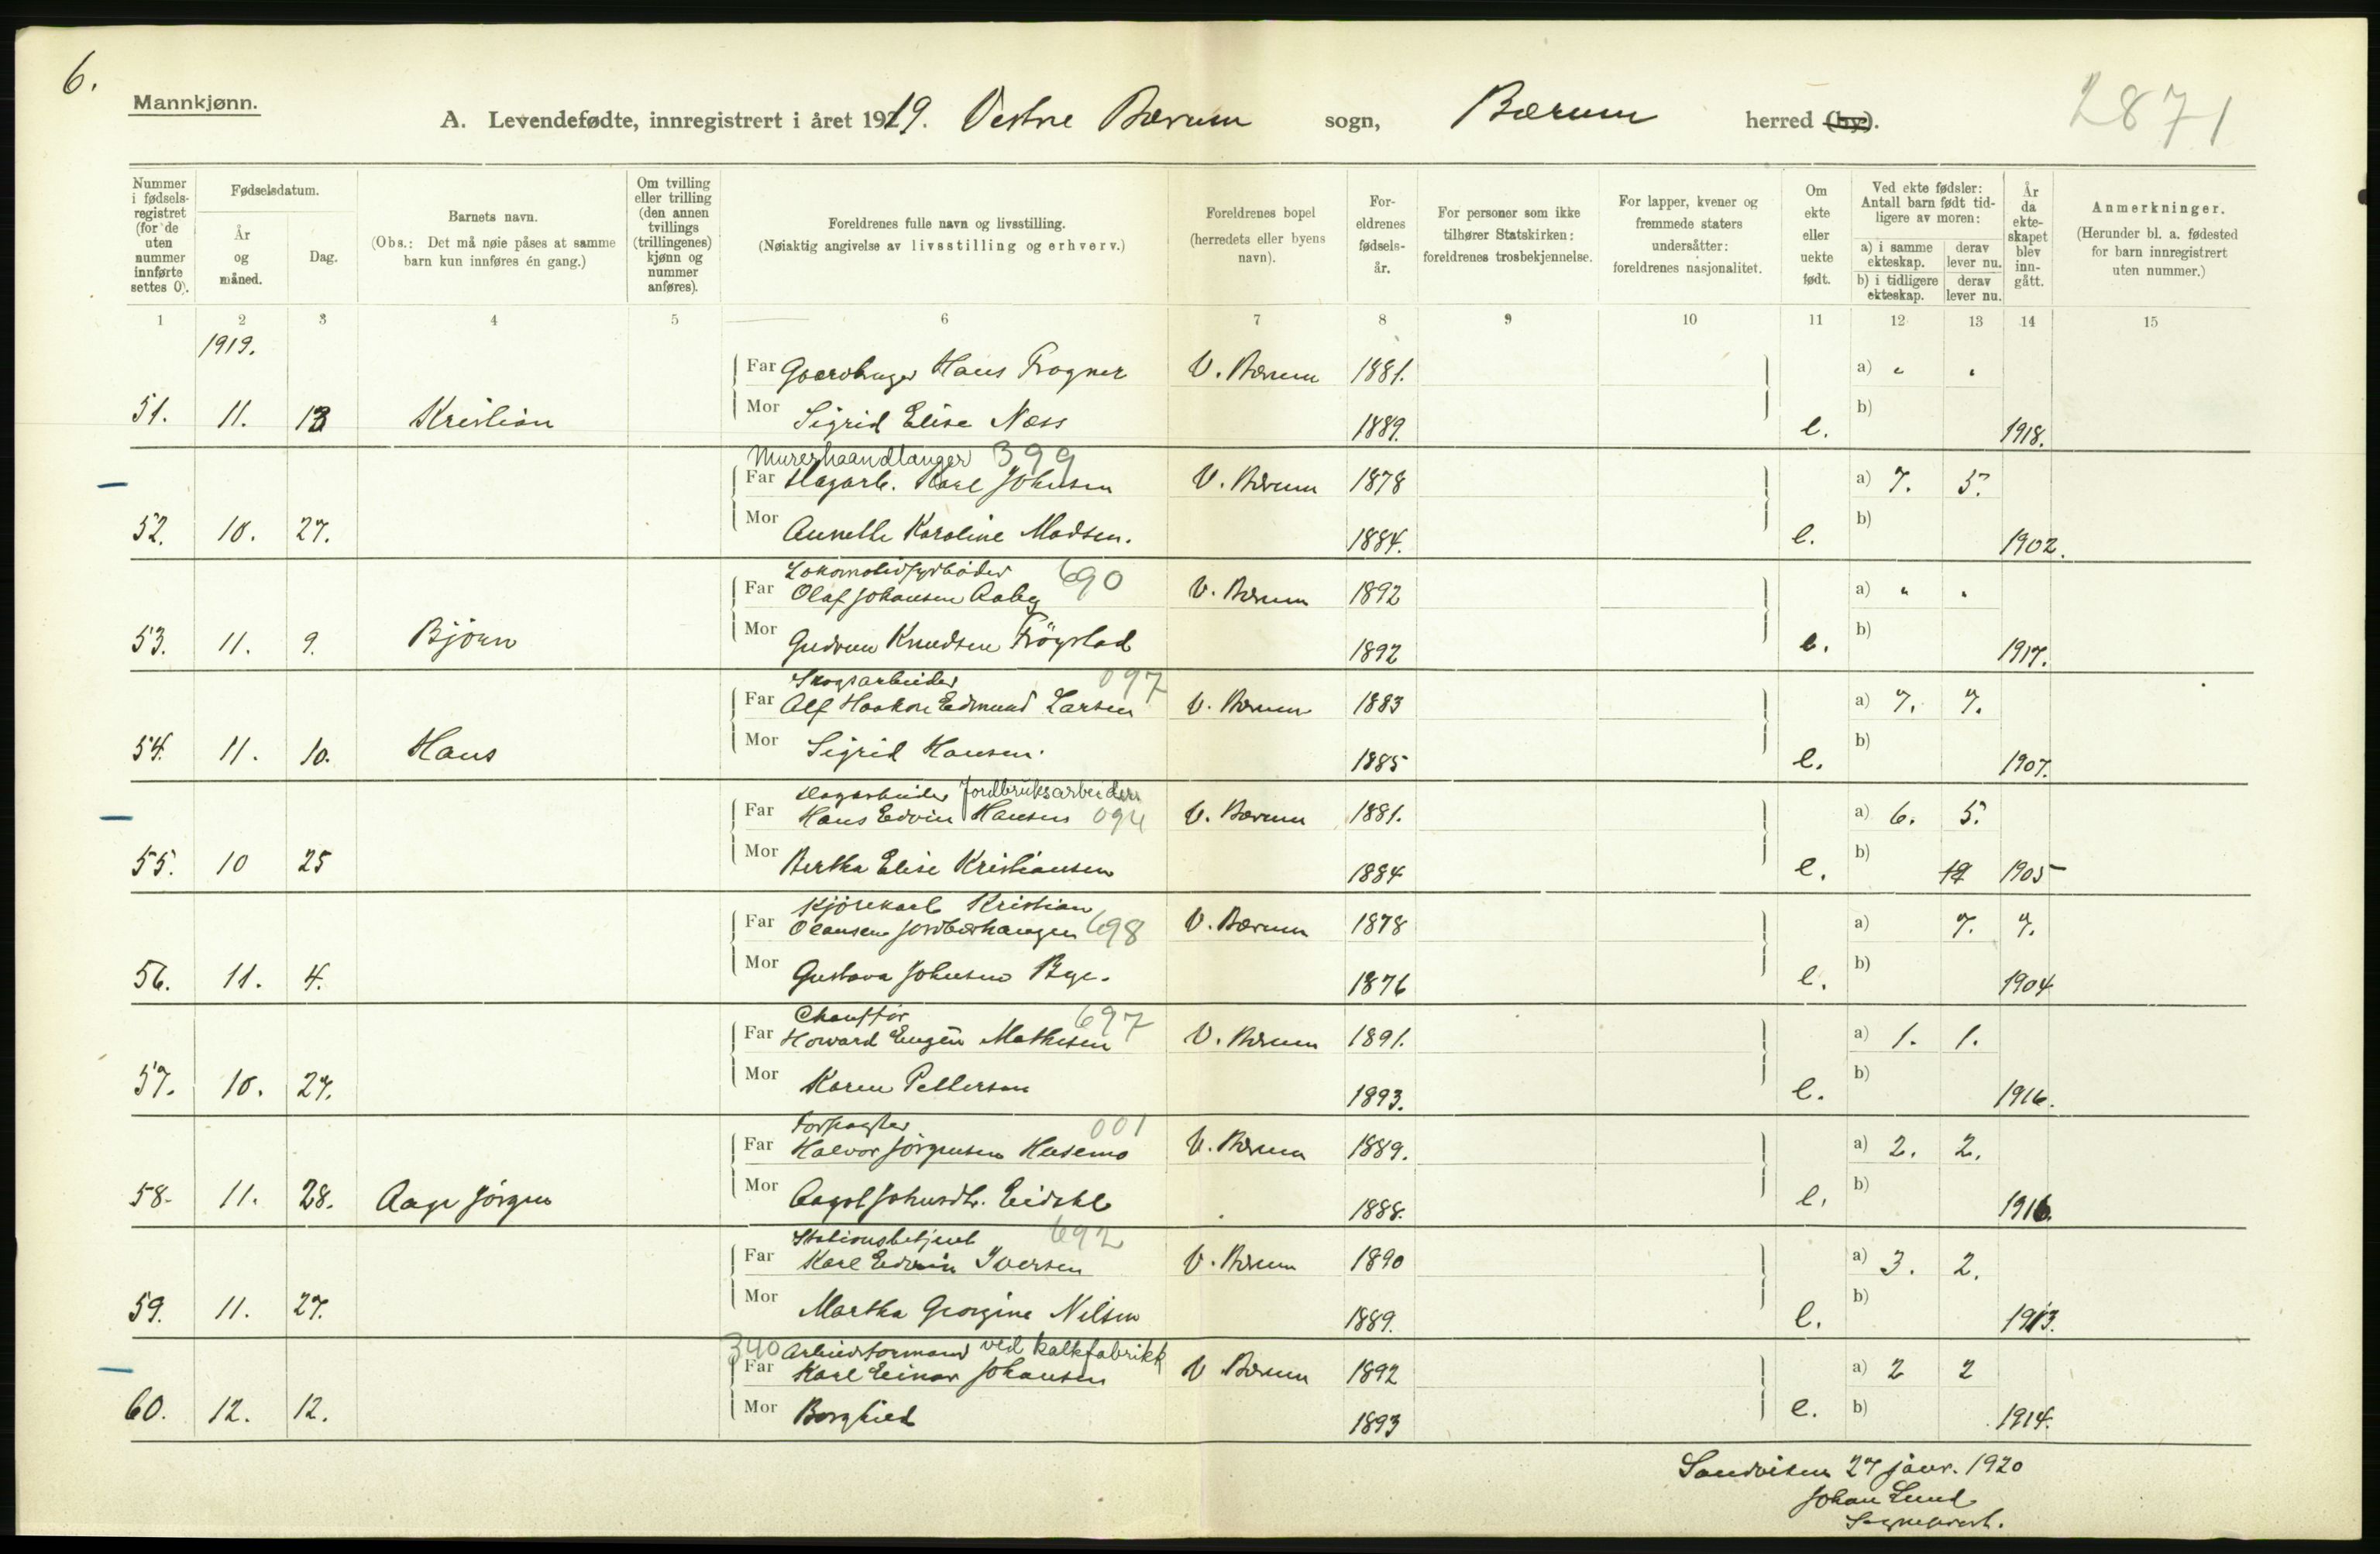 6.
Mannkjønn.
A. Levendefødte, innregistrert i året 1919. Vestre Bærum sogn, Bærum herred (by).
2871
Nummer i fødselsregistret (for de uten nummer innførte settes 0).
Fødselsdatum.
År og måned.
Dag.
Barnets navn.
(Obs.: Det må nøie påses at samme barn kun innføres én gang.)
Om tvilling eller trilling (den annen tvillings (trillingenes) kjønn og nummer anføres).
Foreldrenes fulle navn og livsstilling.
(Nøiaktig angivelse av livsstilling og erhverv.)
Foreldrenes bopel (herredets eller byens navn).
Foreldrenes fødselsår.
For personer som ikke tilhører Statskirken: foreldrenes trosbekjennelse.
For lapper, kvener og fremmede staters undersåtter: foreldrenes nasjonalitet.
Om ekte eller uekte født.
Ved ekte fødsler: Antall barn født tidligere av moren:
a) i samme ekteskap. derav lever nu.
b) i tidligere ekteskap. derav lever nu.
År da ekteskapet blev inngått.
Anmerkninger.
(Herunder bl. a. fødested for barn innregistrert uten nummer.)
1 2 3 4 5 6 7 8 9 10 11 12 13 14 15
1919.
Far Gaardbruger Hans Frogner V. Bærum 1881. a) " "
51. 11. 13 Kristian Mor Sigrid Elise Næss 1889. e. b) 1918.
Murerhaandlanger 399
Far Dagarb. Karl Johnsen V. Bærum 1878 a) 7. 5.
52. 10. 27. Mor Annette Karoline Madsen. 1884. e. b) 1902.
Lokomotivfyrbøder 690
Far Olaf Johansen Aaby V. Bærum 1892 a) " "
53. 11. 9. Bjørn Mor Gudrun Knudsen Frøystad 1892 e. b) 1917.
Skogsarbeider 097
Far Alf Haakon Edmund Larsen V. Bærum 1883 a) 7. 7.
54. 11. 10. Hans Mor Sigrid Hansen. 1885 e. b) 1907.
Dagarbeider Jordbruksarbeider
Far Hans Edvin Hansen 094 V. Bærum 1881. a) 6. 5.
55. 10 25 Mor Bertha Elise Kristiansen 1884 e. b) 19 1905
Kjørekarl Kristian
Far Olausen Jordbærhaugen 698 V. Bærum 1878 a) 7. 7.
56. 11. 4. Mor Gustava Johnsen Bye. 1876 e. b) 1904
Chauffør 697
Far Howard Eugén Mathisen V. Bærum 1891. a) 1. 1.
57. 10. 27. Mor Karen Pettersen 1893. e. b) 1916.
Forpagter 001
Far Halvor Jørgensen Husemo V. Bærum 1889. a) 2. 2.
58. 11. 28. Aage Jørgen Mor Aagot Johnsdtr. 1888. e. b) 1916.
Stationsbetjent 692
Far Karl Edvin Iversen V. Bærum 1890 a) 3. 2.
59. 11. 27. Mor Martha Georgine Nilsen 1889. e. b) 1913.
340 Arbeidsformand ved kalkfabrikk
Far Karl Einar Johansen V Bærum 1892 a) 2 2
60. 12. 12. Mor Borghild 1893 e. b) 1914.
Sandviken 27 januar. 1920
Johan Lund
Sogneprest.